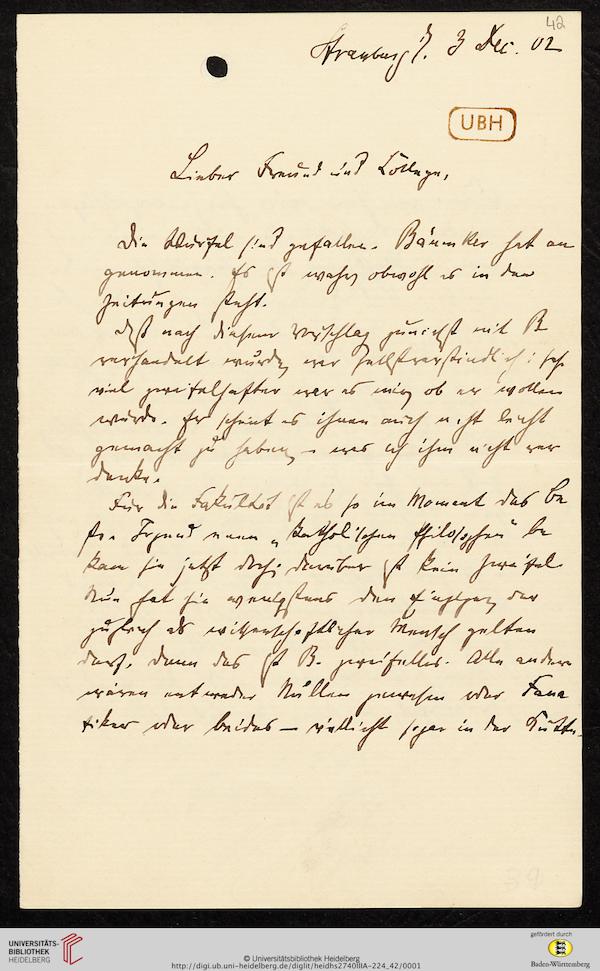 42
Strassburg 3 Dec. 02
UBH
Lieber Freund und College,
Die Würfel sind gefallen. Bäumker hat an
genommen. Es ist wahr, obwohl es in den
Zeitungen steht.
Daß nach diesem Vorschlag zunächst mit B
verhandelt würde, war selbstverständlich: sehr
viel zweifelhafter war es mir, ob er wollen
würde. Er scheint es ihnen auch nicht leicht
gemacht zu haben, was ich ihm nicht ver
denke.
Für die Fakultät ist es so im Moment das be
ste. Irgend einen „katholischen Philosophen" be
kam sie jetzt doch; darüber ist kein Zweifel.
Nun hat sie wenigstens den einzigen, der
zugleich als wissenschaftlicher Mensch gelten
darf, denn das ist B. zweifellos. Alle andern
wären entweder Nullen gewesen oder Fana
tiker oder beides — vielleicht sogar in der Kutte.
39
UNIVERSITÄTS-
BIBLIOTHEK
HEIDELBERG
© Universitätsbibliothek Heidelberg
http://digi.ub.uni-heidelberg.de/diglit/heidhs2740IIIA-224_42/0001
gefördert durch
Baden-Württemberg